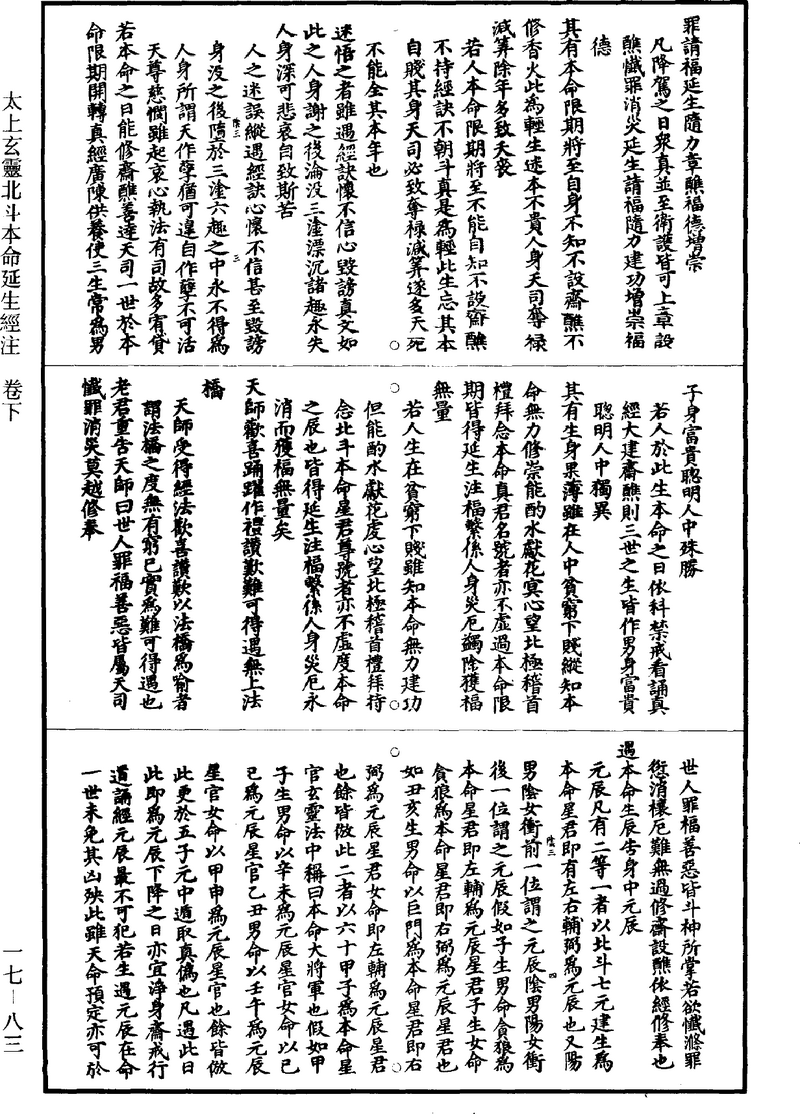 罪請福延生隨力章醮福德增崇
凡降駕之日衆真並至衛護皆可上章設
醮懺罪消災延生請福隨力建功增崇福
德
其有本命限期將至自身不知不設齋醮不
修香火此為輕生迷本不貴人身天司奪祿
減筭除年多致夭喪
若人本命限期將至不能自知不設齋醮
不持經訣不朝斗真是為輕此生忘其本
自賤其身天司必致奪祿減筭遂多夭死
不能全其本年也
迷悟之者雖遇經訣懷不信心毀謗真文如
此之人身謝之後淪沒三塗漂沉諸趣永失
人身深可悲哀自致斯苦
人之迷誤縱遇經訣心懷不信甚至毀謗
身沒之後隨於三塗六趣之中永不得為
人身所謂天作孽猶可違自作孽不可活
天尊慈憫雖起哀心執法有司故多宥貸
若本命之日能修齋醮善達天司一世於本
命限期開轉真經廣陳供養使三生常為男
子身富貴聰明人中殊勝
若人於此生本命之日依科禁戒看誦真
經大建齋醮則三世之生皆作男身富貴
聰明人中獨異
其有生身果薄雖在人中貧窮下賤縱知本
命無力修崇能酌水獻花冥心望北極稽首
禮拜念本命真君名號者亦不虛過本命限
期皆得延生注福繫係人身災厄蠲除獲福
無量
若人生在貧窮下賤雖知本命無力建功
但能酌水獻花虔心望北極稽首禮拜持
念北斗本命星君尊號者亦不虛度本命
之辰也皆得延生注福繫係人身災厄永
消而獲福無量矣
天師歡喜踊躍作禮讚歎難可得遇無上法
橋
天師受得經法歡喜讚歎以法橋為喻者
謂法橋之度無有窮已實為難可得遇也
老君重告天師曰世人罪福善惡皆屬天司
懺罪消災莫越修奉
世人罪福善惡皆斗神所掌若欲懺滌罪
愆消禳厄難無過修齋設醮依經修奉也
遇本命生辰告身中元辰
元辰凡有二等一者以北斗七元建生為
本命星君即有左右輔弼為元辰也又陽
男陰女衝前一位謂之元辰陰男陽女衝
後一位謂之元辰假如子生男命貪狼為
本命星君即左輔為元辰星君子生女命
貪狼為本命星君即右弼為元辰星君也
如丑亥生男命以巨門為本命星君即右
弼為元辰星君女命即左輔為元辰星君
也餘皆倣此二者以六十甲子為本命星
官玄靈法中稱曰本命大將軍也假如甲
子生男命以辛未為元辰星官女命以己
巳為元辰星官乙丑男命以壬午為元辰
星官女命以甲申為元辰星官也餘皆倣
此更於五子元中遁取真偽也凡遇此日
此即為元辰下降之日亦宜淨身齋戒行
道誦經元辰最不可犯若生遇元辰在命
一世未免其凶殃此雖天命預定亦可於
太上玄靈北斗本命延生經注 卷下
一七-八三
陰三
三
陰三
四